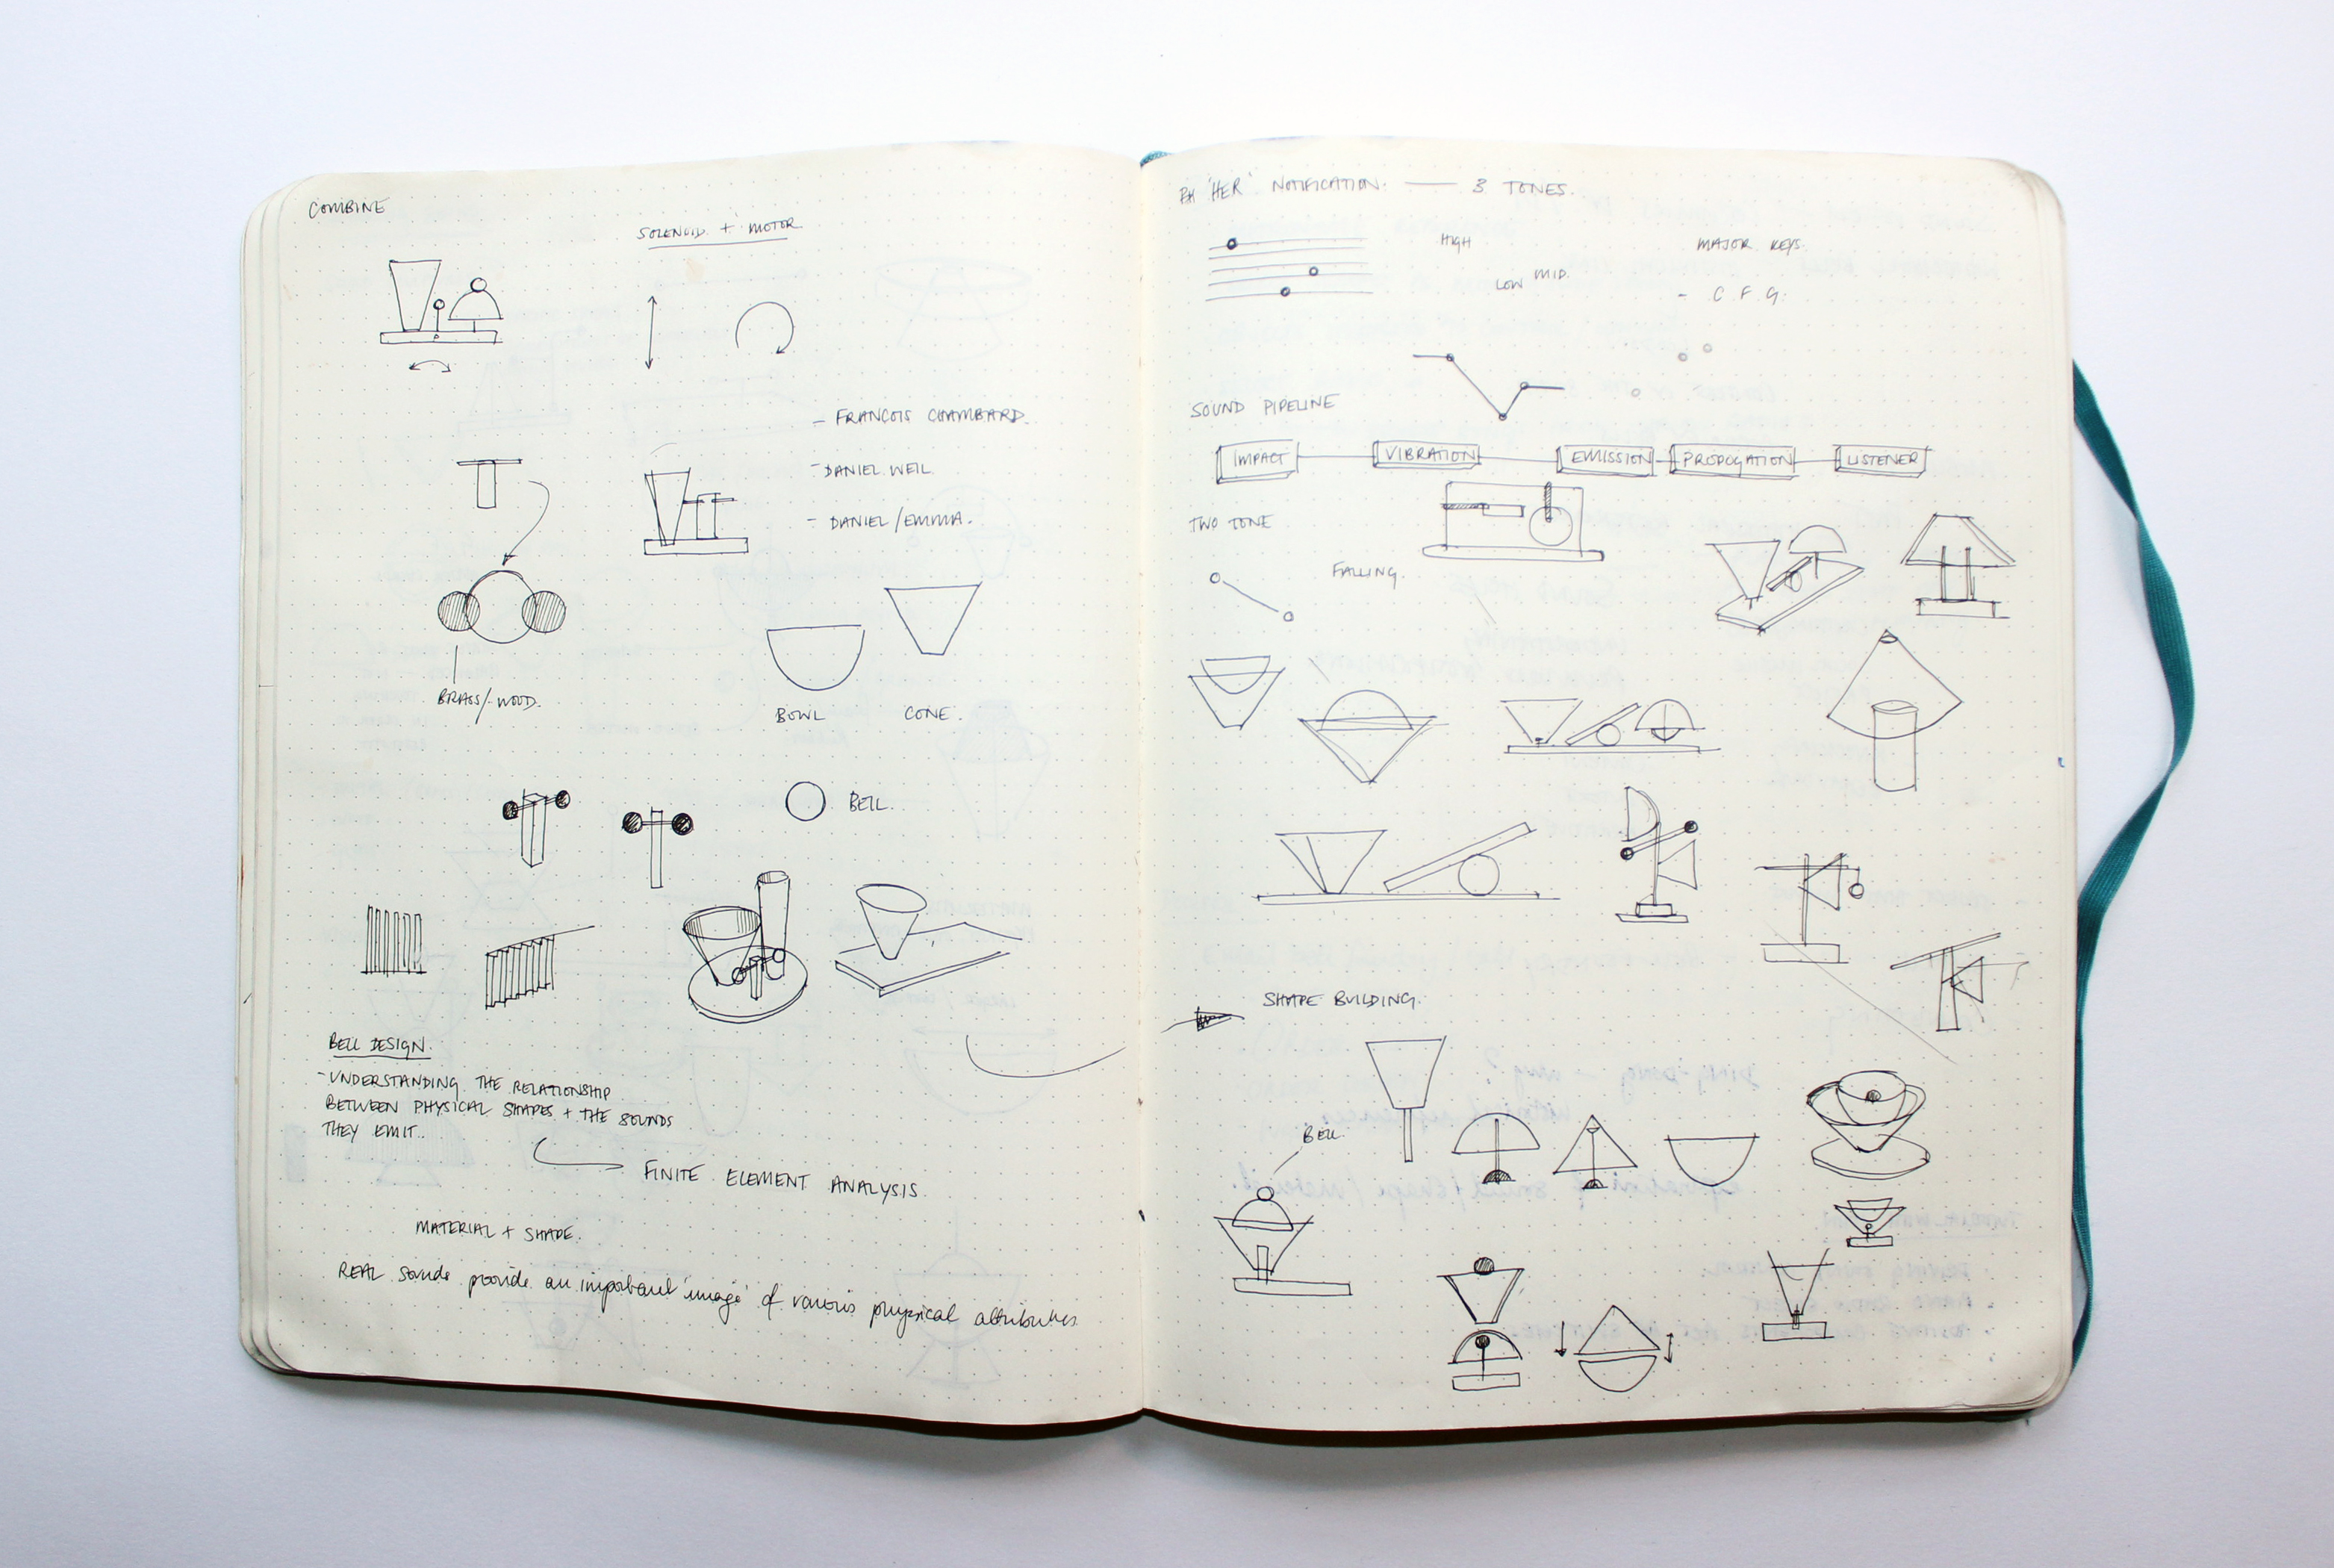 COMBINE
SOLENOID + MOTOR
- FRANÇOIS CHAMBARD.
- DANIEL WEIL
- DANIEL/EMMA.
BRASS/WOOD.
BOWL
CONE.
BELL.
BELL DESIGN.
- UNDERSTANDING THE RELATIONSHIP
BETWEEN PHYSICAL SHAPES + THE SOUNDS
THEY EMIT..
FINITE ELEMENT ANALYSIS.
MATERIAL + SHAPE.
REAL sounds provide an important 'image' of various physical attributes
'HER' NOTIFICATION. — 3 TONES.
HIGH
LOW
MID.
MAJOR KEYS.
- C F G.
SOUND PIPELINE
IMPACT
VIBRATION
EMISSION
PROPOGATION
LISTENER
TWO TONE
FALLING.
SHAPE BUILDING.
BELL.